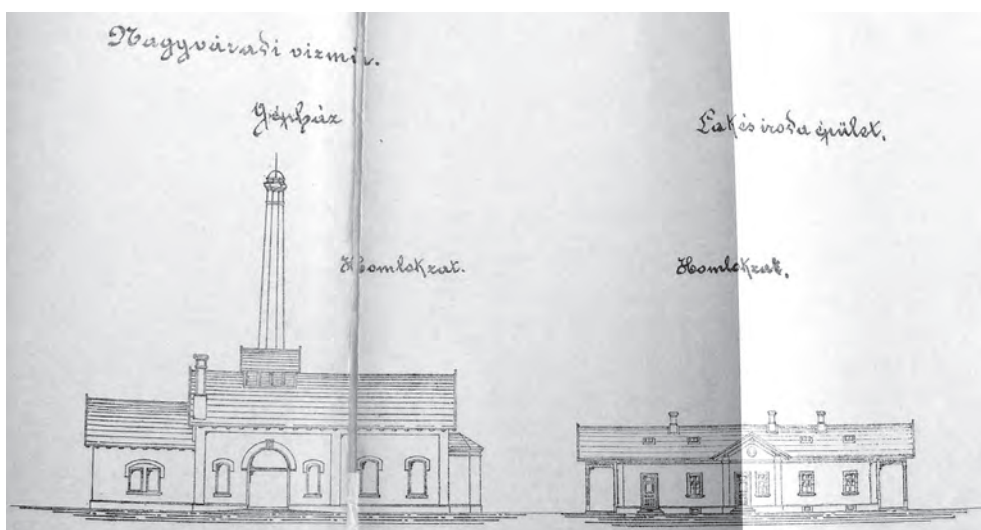 Nagyváradi vizmü.
Gépház
Lak és iroda épület.
Homlokzat.
Homlokzat.